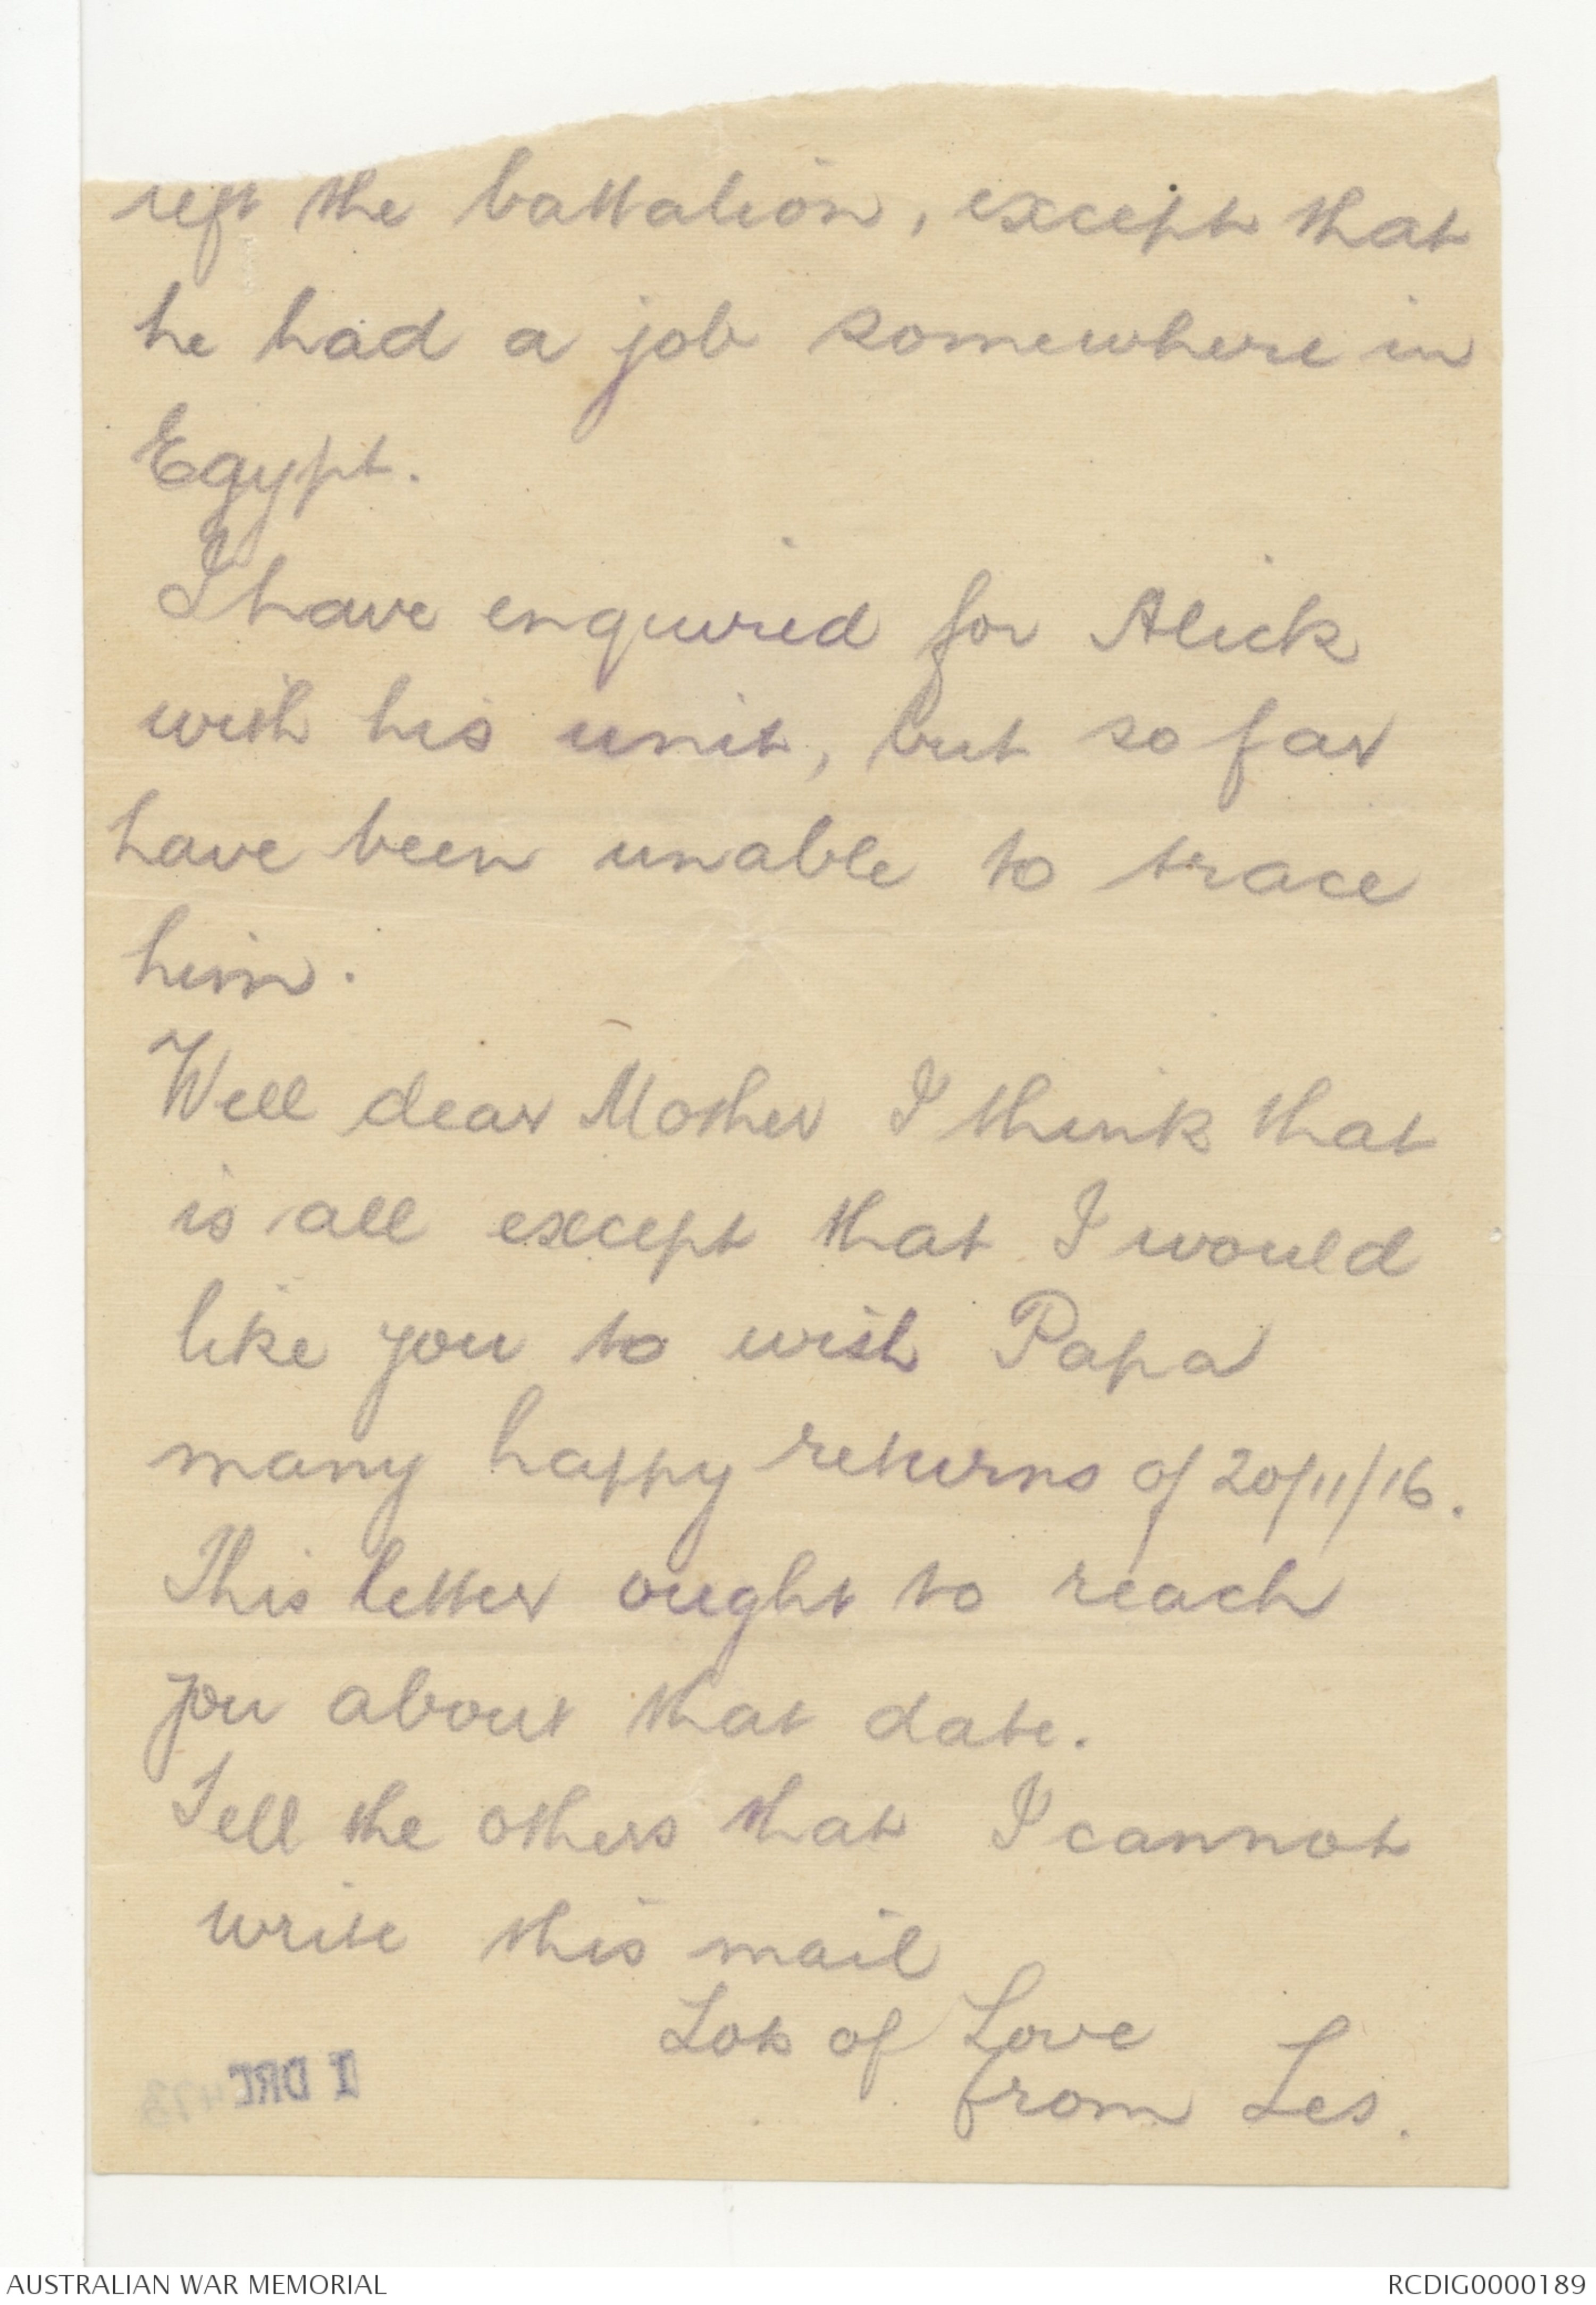 left the battalion, except that
he had a job somewhere in
Egypt.
I have enquired for Alick
with his unit, but so far
have been unable to trace
him.
Well dear Mother I think that
is all except that I would
like you to wish Papa
many happy returns of 20/11/16.
This letter ought to reach
you about that date.
Tell the others that I cannot
write this mail
Lots of Love
from Les.
1 DRL
AUSTRALIAN WAR MEMORIAL
RCDIG0000189